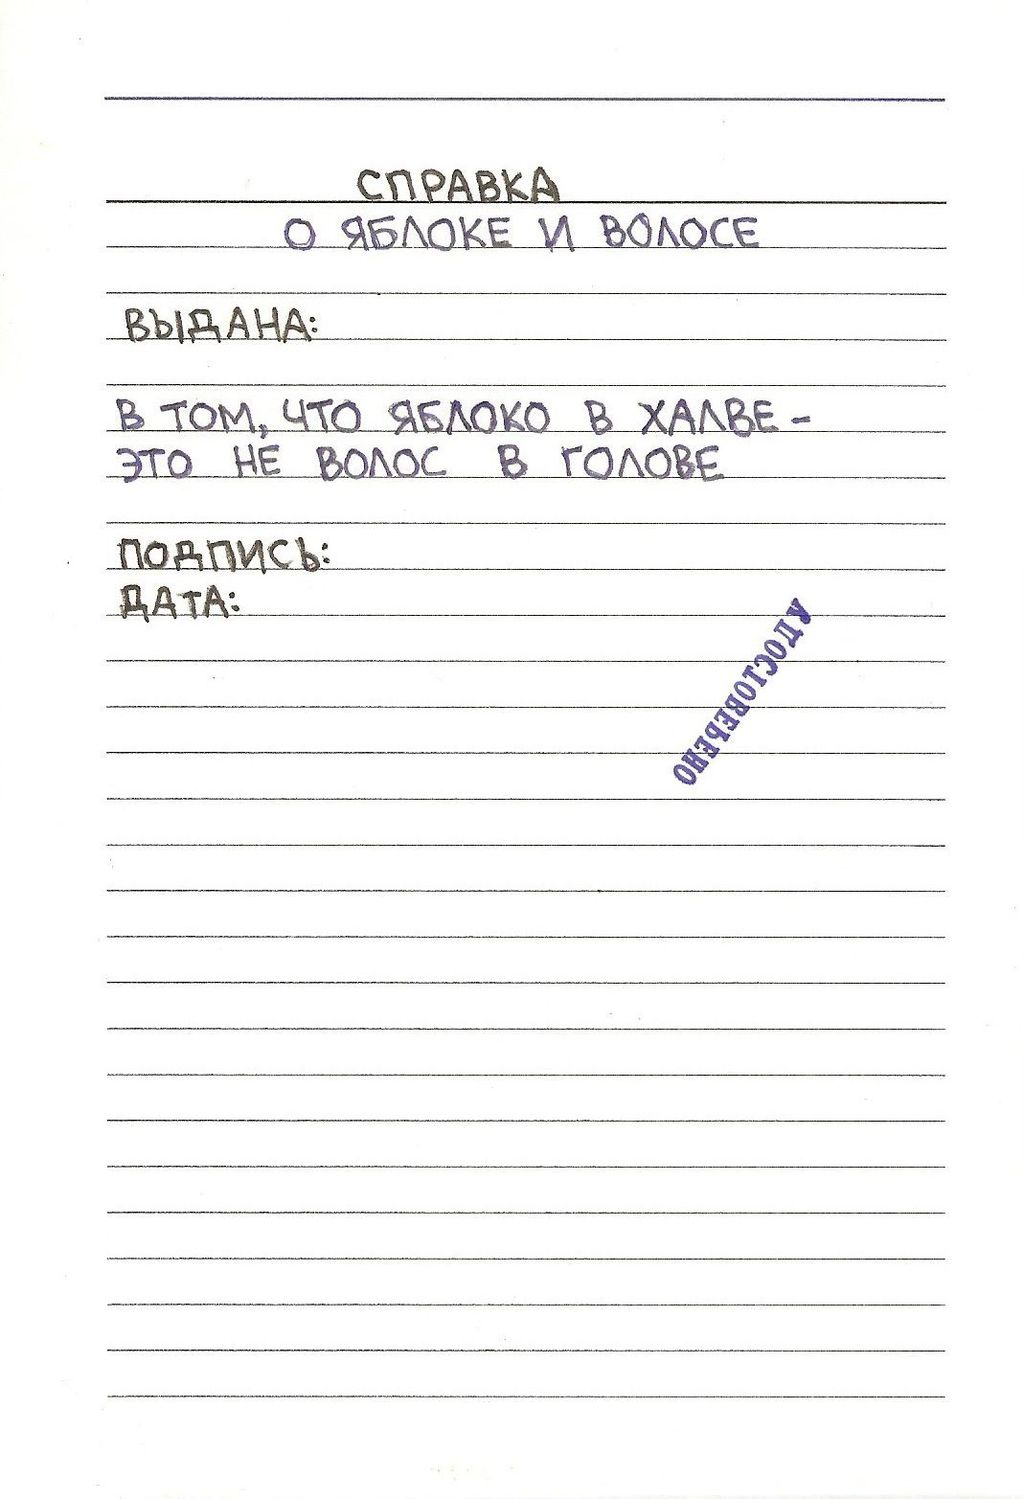 СПРАВКА
О ЯБЛОКЕ И ВОЛОСЕ
ВЫДАНА:
В ТОМ, ЧТО ЯБЛОКО В ХАЛВЕ -
ЭТО НЕ ВОЛОС В ГОЛОВЕ
ПОДПИСЬ:
ДАТА:
УДОСТОВЕРЕНО